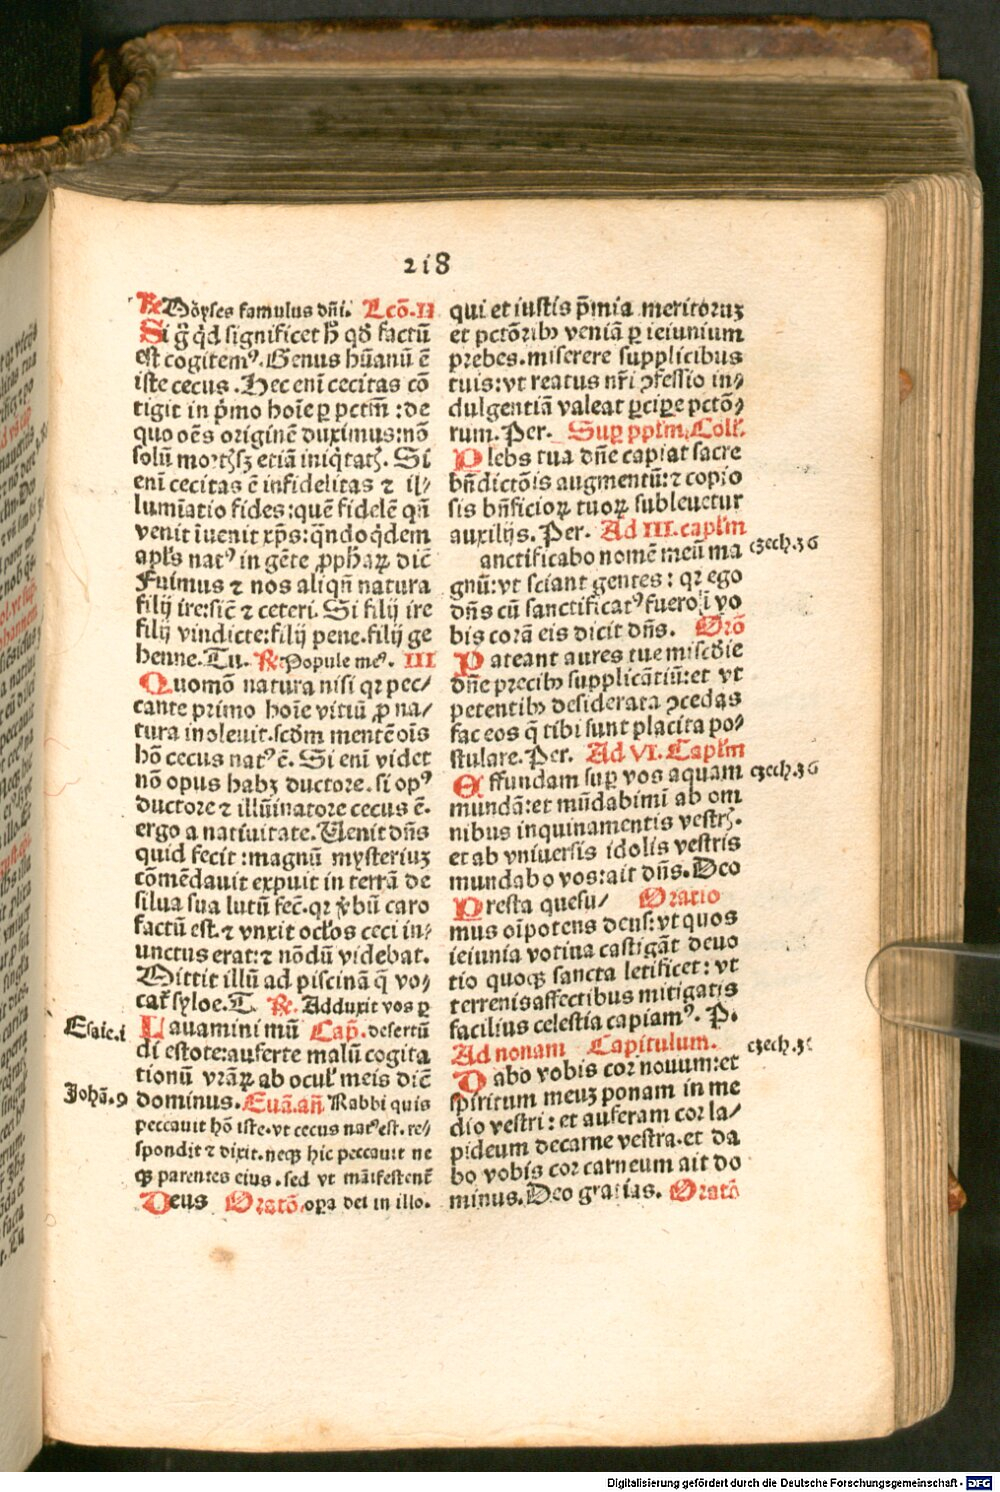 218
℟ Moyses famulus dñi. Lcõ. II
Si g̃ q̃d significet h̃ qđ factũ
est cogitemꝰ. Genus hũanũ ẽ
iste cecus. Hec enĩ cecitas cõ
tigit in p̃mo hoĩe ꝑ pctm̃: de
quo oẽs originẽ duximus: nõ
solũ mortꝭ sꝫ etiã iniq̃tatꝭ. Si
enĩ cecitas ẽ infidelitas ⁊ il⸗
lumĩatio fides: quẽ fidelẽ qñ
venit ĩuenit xp̃s: qñdoq̃dem
apl̃s natꝰ in gẽte ꝓphaꝝ dic̃
Fuimus ⁊ nos aliqñ natura
filij ire: sic̃ ⁊ ceteri. Si filij ire
filij vindicte: filij pene. filij ge
henne. Tu. ℟. Popule meꝰ. III
Quomõ natura nisi qꝛ pec⸗
cante primo hoĩe vitiũ ꝓ na⸗
tura inoleuit. scðm mentẽ oĩs
hõ cecus natꝰ ẽ. Si enĩ videt
nõ opus habꝫ ductore. si opꝰ
ductore ⁊ illũinatore cecus ẽ.
ergo a natiuitate. Uenit dñs
quid fecit: magnũ mysteriuꝫ
cõmẽdauit expuit in terrã de
silua sua lutũ fec̃. qꝛ v̓bũ caro
factũ est. ⁊ vnxit ocl̃os ceci in⸗
unctus erat: ⁊ nõdũ videbat.
Mittit illũ ad piscinã q̃ vo⸗
cat̃ syloe. T. ℟. Adduxit vos ꝑ
Esaie. i
Lauamini mũ Cap̃. desertũ
di estote: auferte malũ cogita
tionũ vr̃aꝝ ab ocul̃ meis dic̃
Johã. 9
dominus. Euã. añ Rabbi quis
peccauit hõ iste. vt cecus natꝰ est. re⸗
spondit ⁊ dixit. neqꝫ hic peccauit ne
qꝫ parentes eius. sed vt mãifestent̃
Deus Oratõ. oꝑa dei in illo.
qui et iustis p̃mia meritoruꝫ
et pctõribꝫ veniã ꝑ ieiunium
prebes. miserere supplicibus
tuis: vt reatus nr̃i ꝯfessio in⸗
dulgentiã valeat ꝑciꝑe pctõ⸗
rum. Per. Suꝑ pplm̃. Coll̃.
Plebs tua dñe capiat sacre
bñdictõis augmentũ: ⁊ copio
sis bñficioꝝ tuoꝝ subleuetur
auxilijs. Per. Ad III. caplm̃
anctificabo nomẽ meũ ma
ezech. 36
gnũ: vt sciant gentes: qꝛ ego
dñs cũ sanctificatꝰ fuero i vo
bis corã eis dicit dñs. Orõ
Pateant aures tue miscðie
dñe precibꝫ supplicãtiũ: et vt
petentibꝫ desiderata ꝯcedas
fac eos q̃ tibi sunt placita po⸗
stulare. Per. Ad VI. Caplm̃
Effundam suꝑ vos aquam
ezech. 36
mundã: et mũdabimĩ ab om
nibus inquinamentis vestrꝭ.
et ab vniuersis idolis vestris
mundabo vos: ait dñs. Deo
Presta quesu⸗ Oratio
mus oĩpotens deus: vt quos
ieiunia votiua castigãt deuo
tio quoqꝫ sancta letificet: vt
terrenis affectibus mitigatis
facilius celestia capiamꝰ. P.
Ad nonam Capitulum.
ezech. 3
Dabo vobis cor nouum: et
spiritum meuꝫ ponam in me
dio vestri: et auferam cor la⸗
pideum de carne vestra. et da
bo vobis cor carneum ait do
minus. Deo gratias. Oratõ
Digitalisierung gefördert durch die Deutsche Forschungsgemeinschaft - DFG